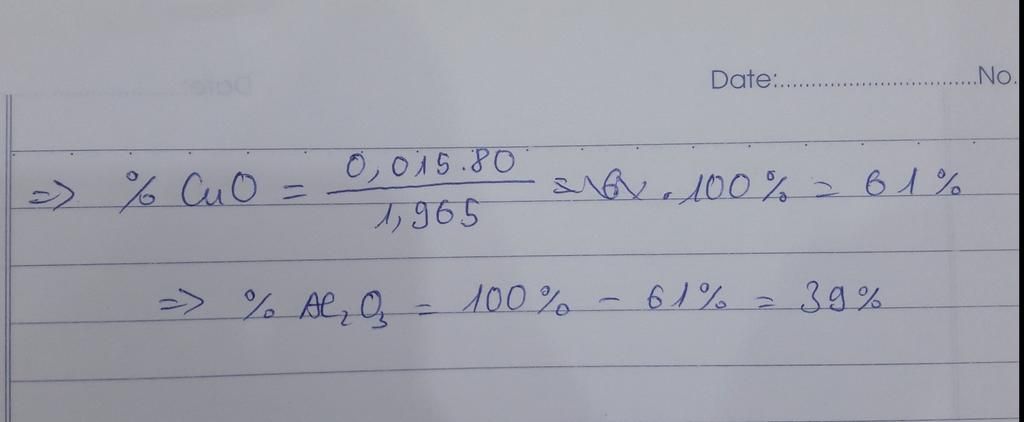 Date:..............................No.
=> % CuO = 0,015.80 / 1,965 . 100% = 61%
=> % Al₂O₃ = 100% - 61% = 39%